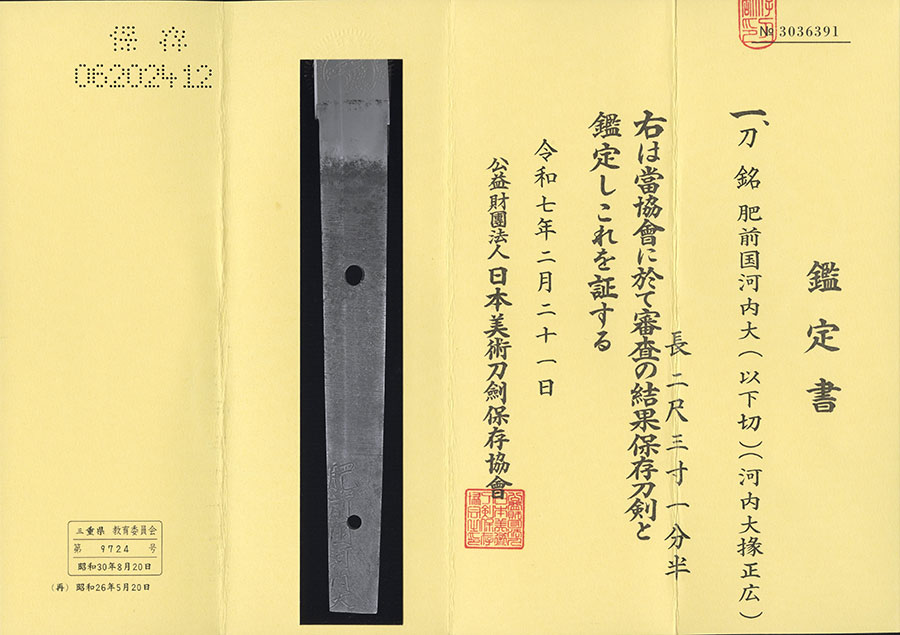 № 3036391
鑑定書
一、刀 銘 肥前国河内大(以下切)(河内大掾正広)
長 二尺三寸一分半
右は當協會に於て審査の結果保存刀剣と
鑑定しこれを証する
令和七年二月二十一日
公益財團法人 日本美術刀劍保存協會
保存
06202412
三重県 教育委員会
第 9724 号
昭和30年8月20日
(再) 昭和26年5月20日